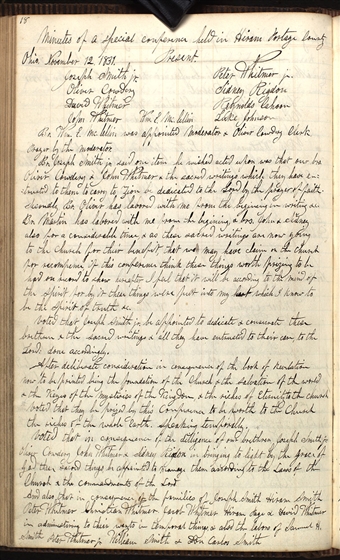 18
Minutes of a special conference held in Hiram Portage County
Ohio November 12 1831. Present
Joseph Smith jr. Peter Whitmer jr.
Oliver Cowdery Sidney Rigdon
David Whitmer Reynolds Cahoon
John Whitmer Wm E. McLelin Luke Johnson
Br. Wm E. McLelin was appointed Moderator & Oliver Cowdery Clerk.
Prayer by the moderator
Br. Joseph Smith jr. said one item he wished acted upon was that our br
Oliver Cowdery & John Whitmer & the sacred writings which they have en-
trusted to them to carry to Zion be dedicated to the Lord by the prayer of faith.
Secondly, Br. Oliver has labored with me from the beginning in writing &c
Br. Martin has labored with me from the beginning, & brs. John & Sidney
also for a considerable time, & as these sacred writings are now going
to the Church for their benefit, that we may have claim on the Church
for recompence if this conference think these things worth prizing to be
had on record to show hereafter I feel that it will be according to the mind of
the Spirit for by it these things were put into my heart which I know to
be the Spirit of truth &c.
Voted that Joseph Smith jr. be appointed to dedicate & consecrate these
brethren & the sacred writings & all they have entrusted to their care, to the
Lord: done accordingly.
After deliberate consideration in consequence of the book of Revelations
now to be printed being the foundation of the Church & the salvation of the world
& the Keys of the mysteries of the Kingdom, & the riches of Eternity to the church
Voted that they be prized by this Conference to be worth to the Church
the riches of the whole Earth. speaking temporally.
Voted that in consequence of the diligence of our brethren, Joseph Smith jr
Oliver Cowdery John Whitmer & Sidney Rigdon in bringing to light by the grace of
God these sacred things, be appointed to manage them according to the Laws of the
Church & the commandments of the Lord
And also that in consequence of the families of Joseph Smith Hiram Smith
Peter Whitmer Christian Whitmer Jacob Whitmer Hiram Page & David Whitmer
in administering to their wants in temporal things & also the labors of Samuel H.
Smith Peter Whitmer jr. William Smith & Don Carlos Smith